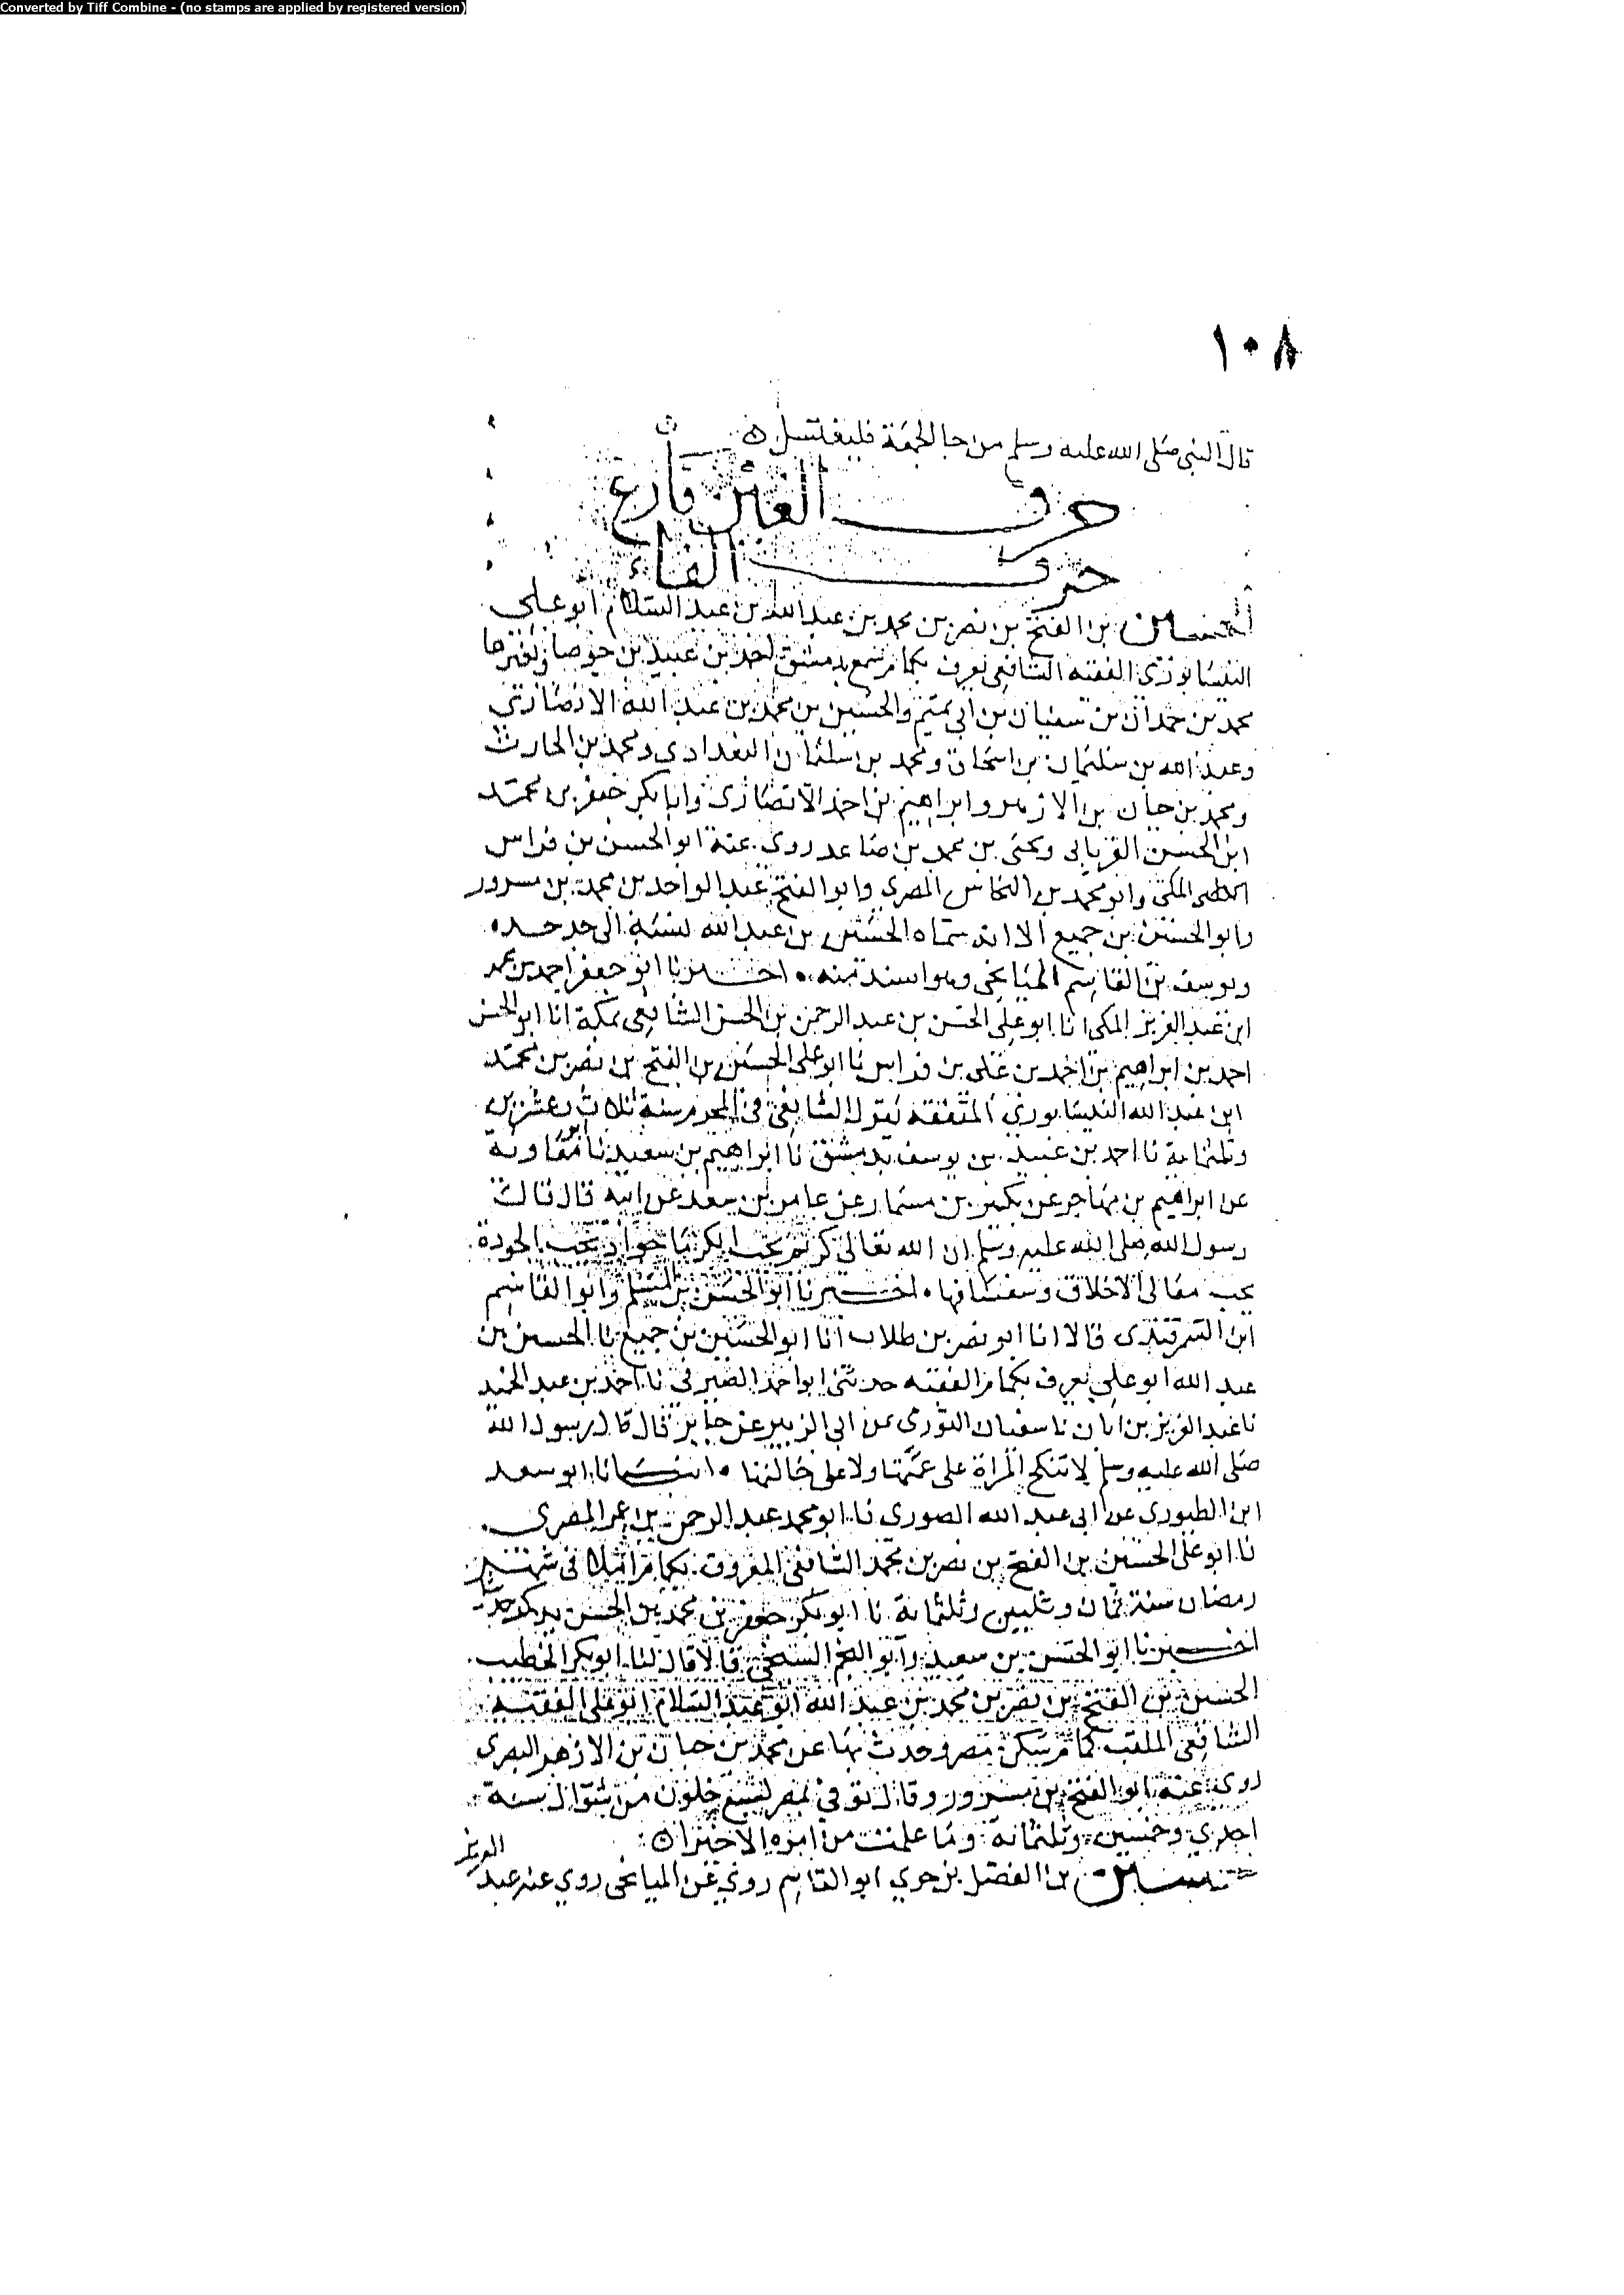 Converted by Tiff Combine - (no stamps are applied by registered version)
١٠٨
قال النبي صلى الله عليه وسلم من جا الجمعة فليغتسل
حرف الغين فارغ
حرف الفاء
الحسين بن الفتح بن نصر بن محمد بن عبد الله بن عبد السلام ابو علي
النيسابوري الفقيه الشافعي يعرف بكمام سمع بدمشق احمد بن عبيد بن جوصا وبغيرها
محمد بن حمدان بن سفيان بن ابي تميم والحسين بن محمد بن عبد الله الانصاري
وعبد الله بن سليمان بن اسحاق ومحمد بن سليمان البغدادي ومحمد بن الحارث
ومحمد بن حيان بن الازهر وابراهيم بن احمد الانصاري وابا بكر جعفر بن محمد
ابن الحسن الفريابي ويحيى بن محمد بن صاعد روى عنه ابو الحسن بن فراس
المكي وابو محمد بن النحاس المصري وابو الفتح عبد الواحد بن محمد بن مسرور
وابو الحسين بن جميع الا انه سماه الحسين بن عبد الله نسبة الى جد جده
ويوسف بن القاسم الميانجي وهو اسند منه اخبرنا ابو جعفر احمد بن محمد
ابن عبد العزيز المكي انا ابو علي الحسن بن عبد الرحمن بن الحسن الشافعي بمكة انا ابو الحسن
احمد بن ابراهيم بن احمد بن علي بن فراس نا ابو علي الحسين بن الفتح بن نصر بن محمد
ابن عبد الله النيسابوري المتفقه لقول الشافعي في المحرم سنة ثلاث وعشرين
وثلثماية نا احمد بن عبيد بن يوسف بدمشق نا ابراهيم بن سعيد نا ابو معاوية
عن ابراهيم بن مهاجر عن بكير بن مسمار عن عامر بن سعد عن ابيه قال قال
رسول الله صلى الله عليه وسلم ان الله تعالى كريم يحب الكرما جواد يحب الجودة
يحب معالى الاخلاق وسفسافها اخبرنا ابو الحسن بن المسلم وابو القاسم
ابن السمرقندي قالا انا ابو نصر بن طلاب انا ابو الحسين بن جميع نا الحسين بن
عبد الله ابو علي يعرف بكمام الفقيه حدثني ابو احمد الصيرفي نا احمد بن عبد الحميد
نا عبد العزيز بن ابان نا سفيان الثوري عن ابي الزبير عن جابر قال قال رسول الله
صلى الله عليه وسلم لا تنكح المراة على عمتها ولا على خالتها انبانا ابو سعد
ابن الطيوري عن ابي عبد الله الصوري نا ابو محمد عبد الرحمن بن عمر المصري
نا ابو علي الحسين بن الفتح بن نصر بن محمد الشافعي المعروف بكمام املا في شهر
رمضان سنة ثمان وثلثين وثلثماية نا ابو بكر جعفر بن محمد بن الحسن
اخبرنا ابو الحسن بن سعيد وابو النجم الشيحي قالا قال لنا ابو بكر الخطيب
الحسين بن الفتح بن نصر بن محمد بن عبد الله ابو عبد السلام ابو علي الفقيه
الشافعي الملقب كمام سكن مصر وحدث بها عن محمد بن حيان بن الازهر البصري
روى عنه ابو الفتح بن مسرور وقال توفي بمصر خلون من شوال سنة
احدى وخمسين وثلثماية وما علمت من امره الا خيرا
حسين بن الفضل بن حوي ابو القاسم روى عن الميانجي روي عنه عبد
العزيز